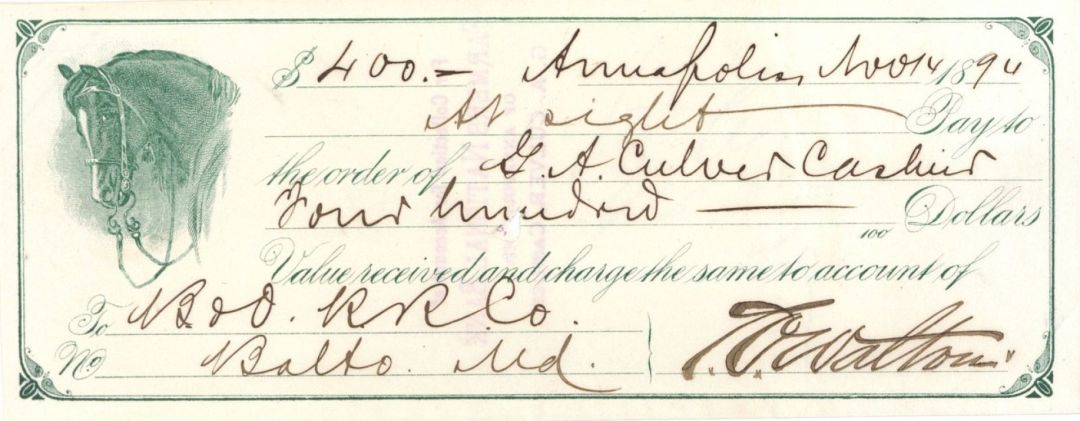 $ 400.— Annapolis, Nov 14 1894
At sight Pay to
the order of G. A. Culver Cashier
Four hundred — 100 Dollars
Value received and charge the same to account of
To B & O. R R Co.
No Balto. Md. Walton